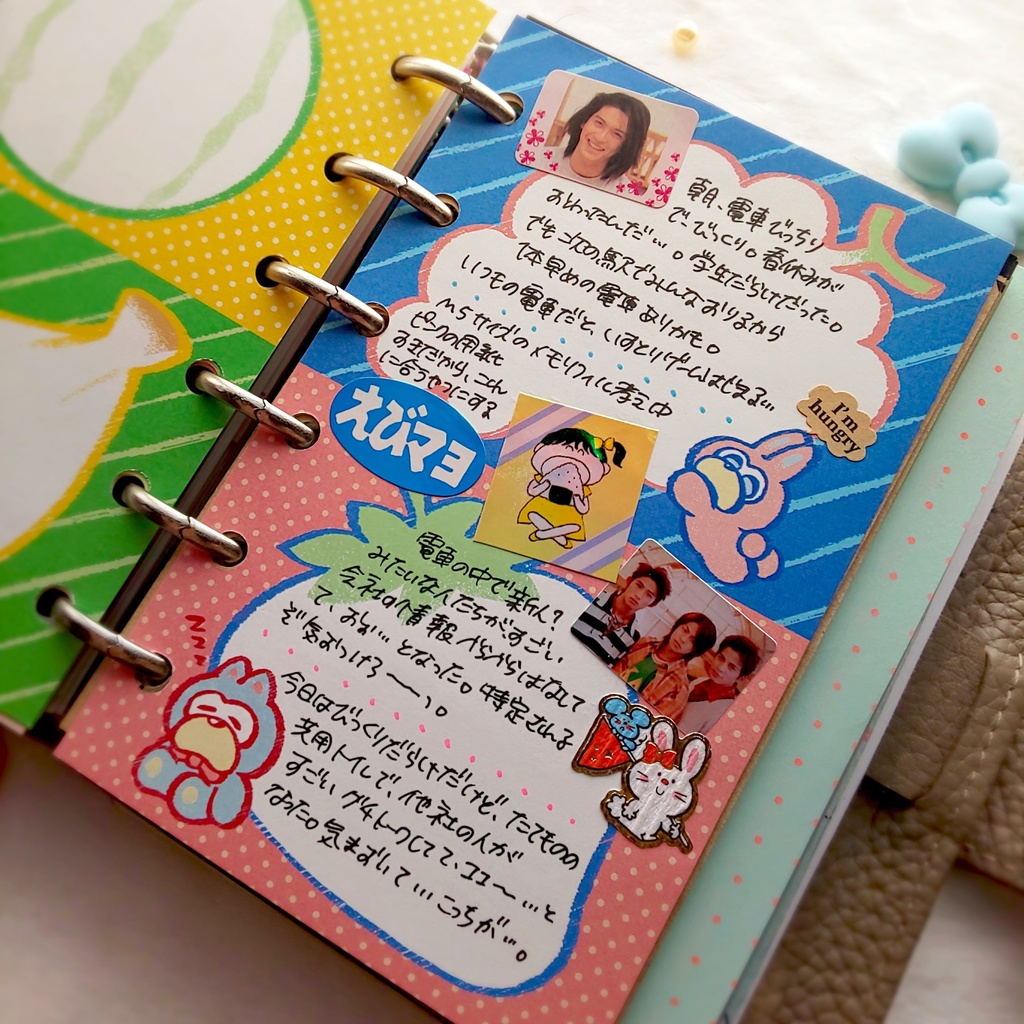 朝、電車びっちり
でーびっくり。春休みが
おわったんだ…。学生だらけだった。
でも次の駅でみんなおりるから
1本早めの電車ありかも。
いつもの電車だと、いすとりゲームはじまる…
M5サイズのメモリフィル考え中
ピンクの用紙
まだだから、こん
に合うやつにする
I'm
hungry
えびマヨ
電車の中で新人?
みたいな人たちがすごい
会社の情報べらべらはなして
て、おお…となった。特定されん
ぞ気おつけろーーっ。
今日はびっくりだらけだけど、たてものの
共用トイレで、他社の人が
すごいグチトークしてて、エエ〜…と
なった。気まずいて…こっちが…。